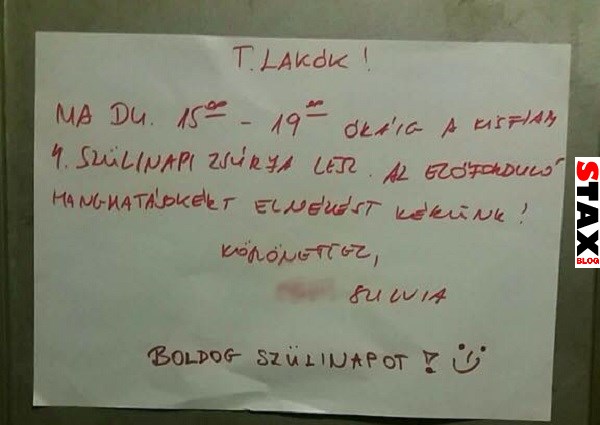 T. LAKÓK!
MA DU. 15⁰⁰ - 19⁰⁰ ÓRÁIG A KISFIAM
4. SZÜLINAPI ZSÚRJA LESZ. AZ ELŐFORDULÓ
HANGHATÁSOKÉRT ELNÉZÉST KÉRÜNK!
KÖSZÖNETTEL,
SZILVIA
BOLDOG SZÜLINAPOT!
STAX
BLOG